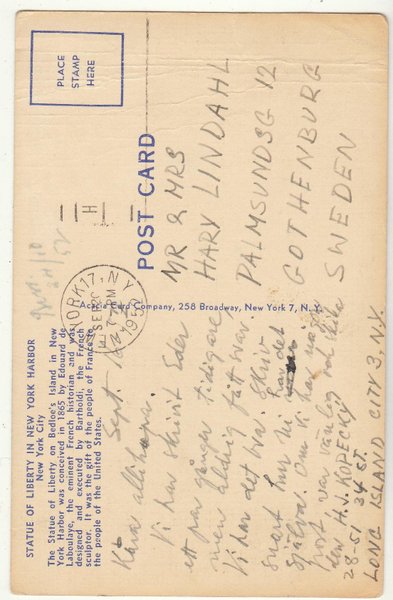 STATUE OF LIBERTY IN NEW YORK HARBOR
New York City
The Statue of Liberty on Bedloe's Island in New
York Harbor was conceived in 1865 by Edouard de
Laboulaye, the eminent French historian and was
designed and executed by Bartholdi; the French
sculptor. It was the gift of the people of France to
the people of the United States.
Sept.
Kära allihopa.
Vi har skrivit Eder
ett par gånger tidigare,
men aldrig fått svar.
Vi har det bra. Skriv
snart hur Ni har det
själva. Om Ni har
post var vänlig och
den H.V. KOPECKY
28-51 34 ST.
LONG ISLAND CITY 3, N.Y.
Acacia Card Company, 258 Broadway, New York 7, N. Y.
POST CARD
PLACE
STAMP
HERE
YORK, 17, N.Y.
SEP
PM
1950
H
MR & MRS
HARY LINDAHL
PALMSUNDSG 12
GOTHENBURG
SWEDEN